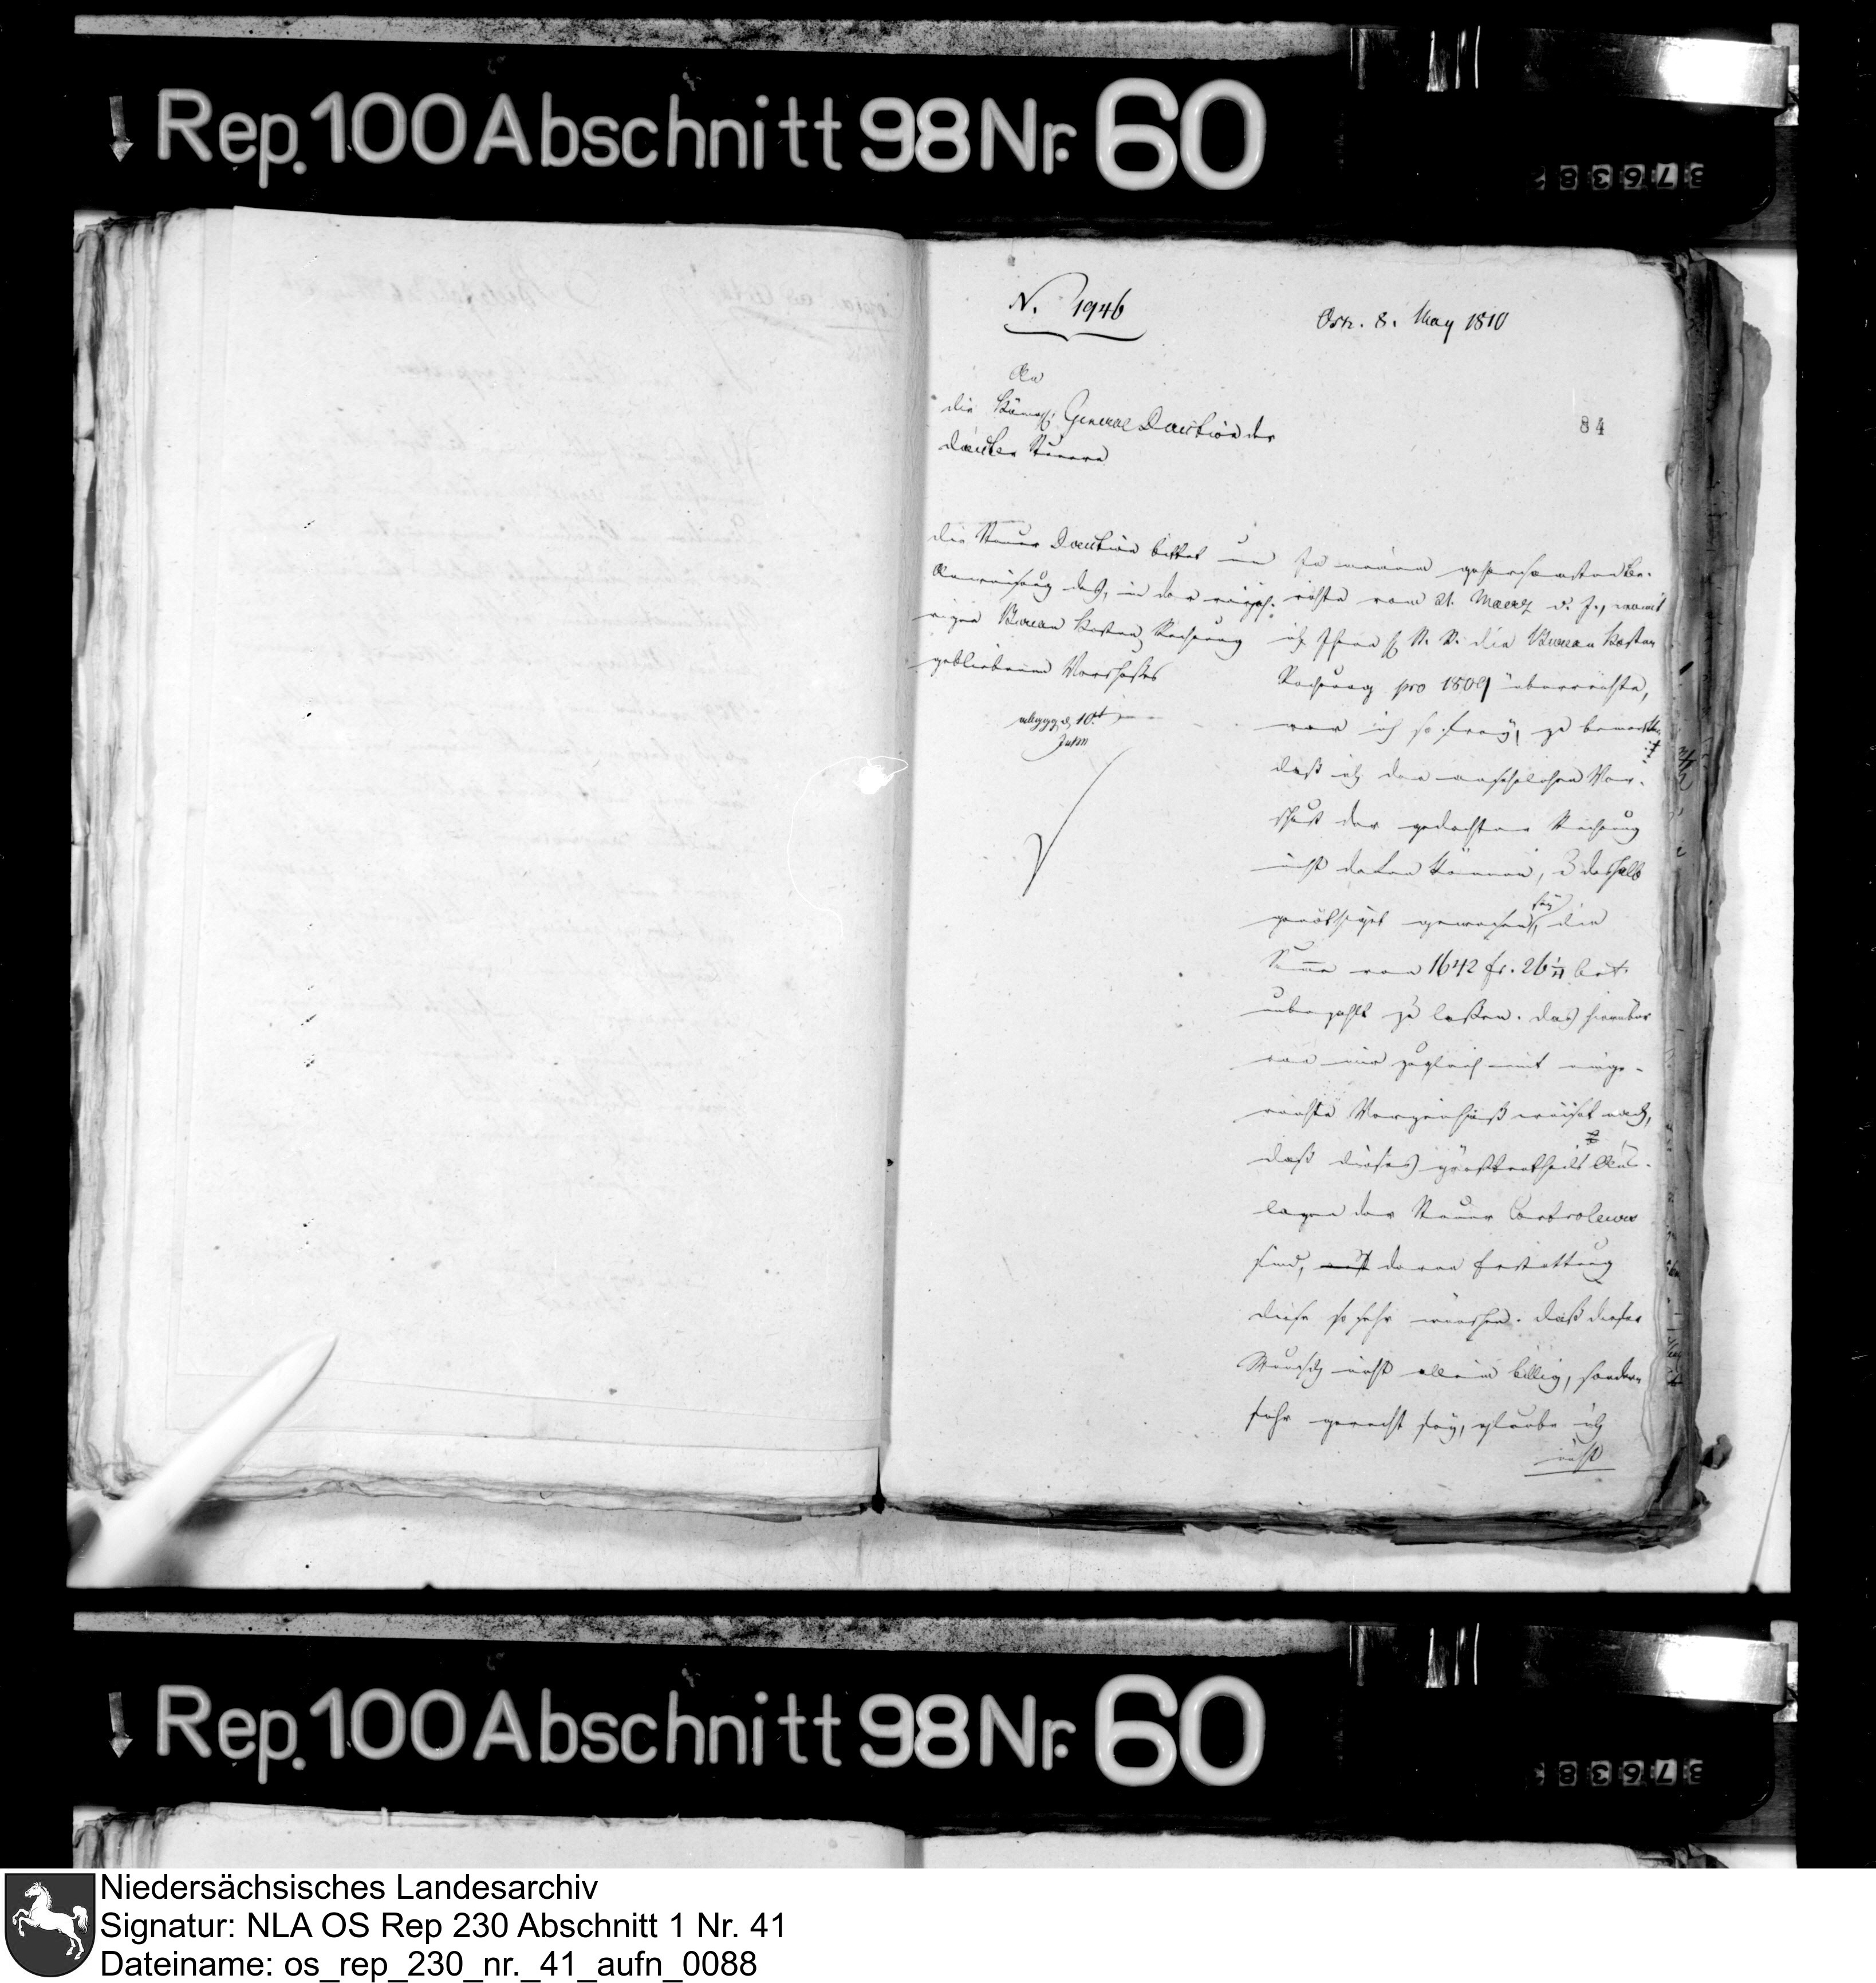 Rep. 100 Abschnitt 98 Nr. 60
N. 1946
Osn. 8. May 1810
84
An
die Königl. General Direction der
directen Steuern
die Steuer Direction bittet um
Anweisung des, in der vorjäh-
rigen Bureau Kosten Rechnung
gebliebenen Vorschußes
abgeg. d. 10t
In meinem gehorsamsten Be-
richte vom 21. Maerz d. J., womit
ich Ihnen die Bureau Kosten
Rechnung pro 1809 überreichte,
war ich so frey, zu bemerken
daß ich den ansehnlichen Vor-
schuß der gedachten Rechnung
nicht decken könne, & deshalb
genöthiget gewesen sey, die
Summe von 1642 fr. 26 Cent.
unbezahlt zu laßen. Das hierüber
von mir zugleich mit einge-
reichte Verzeichniß weiset nach,
daß dieses größtentheils Aus-
lagen der Steuer Controleurs
sind, deren Erstattung
diese so sehr wünschen. Daß dieser
Wunsch nicht allein billig, sondern
sehr gerecht sey, glaube ich
nicht
Rep. 100 Abschnitt 98 Nr. 60
Niedersächsisches Landesarchiv
Signatur: NLA OS Rep 230 Abschnitt 1 Nr. 41
Dateiname: os_rep_230_nr._41_aufn_0088